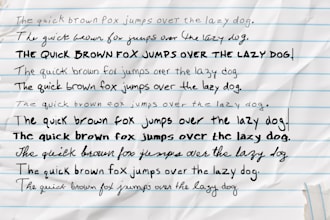 The quick brown fox jumps over the lazy dog.
The quick brown fox jumps over the lazy dog.
THE QUICK BROWN FOX JUMPS OVER THE LAZY DOG!
The quick brown fox jumps over the lazy dog
The quick brown fox jumps over the lazy dog.
The quick brown fox jumps over the lazy dog.
The quick brown fox jumps over the lazy dog!
The quick brown fox jumps over the lazy dog.
The quick brown fox jumps over the lazy dog
The quick brown fox jumps over the lazy dog.
The quick brown fox jumps over the lazy dog